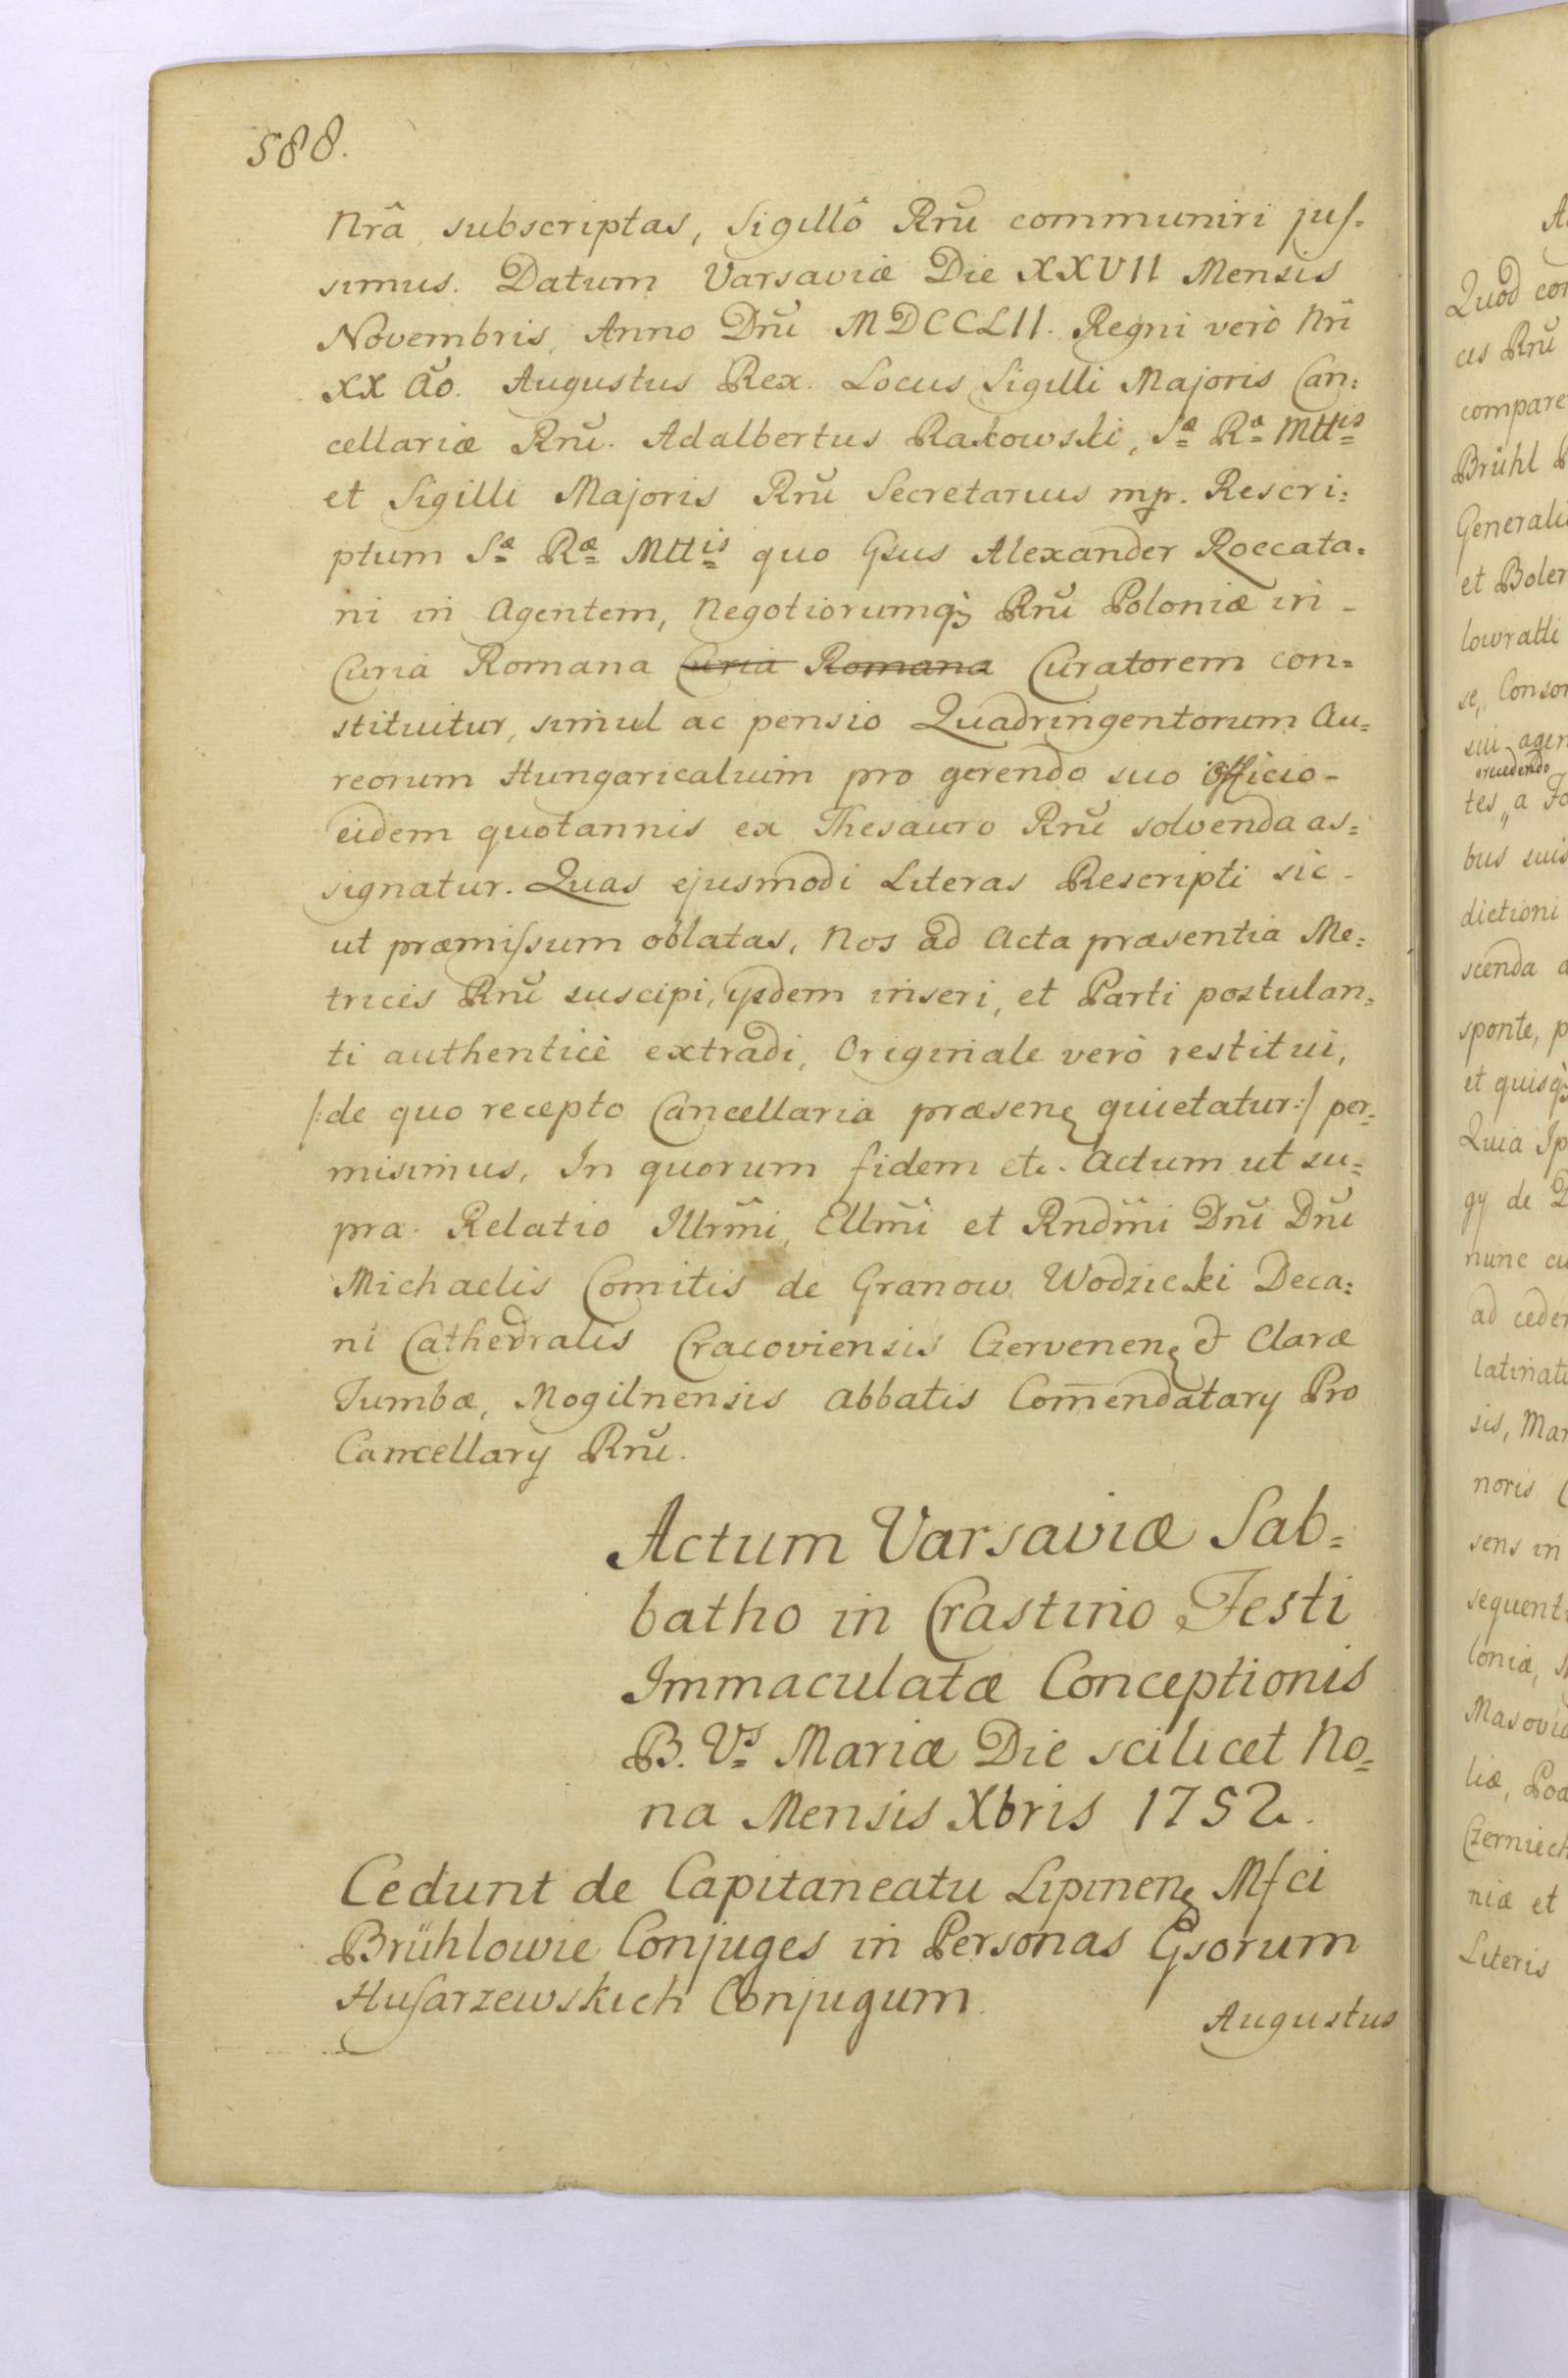 588.
Nrâ subscriptas, Sigillô Rnĩ communiri jus-
simus. Datum Varsaviæ Die XXVII Mensis
Novembris, Anno Dnĩ MDCCLII. Regni verò Nrĩ
XX ão. Augustus Rex. Locus Sigilli Majoris Can:
cellariæ Rnĩ. Adalbertus Rakowski, Sæ Ræ Mttis
et Sigilli Majoris Rnĩ Secretarius mp. Rescri:
ptum Sæ Ræ Mttis quo Gsus Alexander Roccata=
ni in Agentem, Negotiorumq̀ Rnĩ Poloniæ in -
Curia Romana Curia Romana Curatorem con=
stituitur, simul ac pensio Quadringentorum Au=
reorum Hungaricalium pro gerendo suo Officio -
eidem quotannis ex Thesauro Rnĩ solvenda as=
signatur. Quas ejusmodi Literas Rescripti sic -
ut præmissum oblatas, Nos ad Acta præsentia Me=
trices Rnĩ suscipi, ijsdem inseri, et Parti postulan=
ti authenticè extradi, Originale verò restitui,
/:de quo recepto Cancellaria præsenę quietatur:/ per=
misimus, In quorum fidem etc. Actum ut su=
pra. Relatio Illrm̃i, Ellm̃i et Rndm̃i Dnĩ Dnĩ
Michaelis Comitis de Granow Wodzicki Deca:
ni Cathedralis Cracoviensis Czervenenę & Claræ
Tumbæ, Mogilnensis Abbatis Com̄endatary Pro
Cancellary Rnĩ.
Actum Varsaviæ Sab=
batho in Crastino Festi
Immaculatæ Conceptionis
B. Vs Mariæ Die scilicet No=
na Mensis Xbris 1752.
Cedunt de Capitaneatu Lipinenę Mfci
Brühlowie Conjuges in Personas Gsorum
Husarzewskich Conjugum.
Augustus
Quod
ces Rnĩ
compare
Brühl
et Boler
lowratti
tes, a
bus suis
dictioni
scenda
sponte,
et quisq̀
Quia
gy de
nunc
ad ceder
sis,
noris
sens in
sequent
loniæ,
Masovi
liæ,
Czerniech
niæ et
Literis